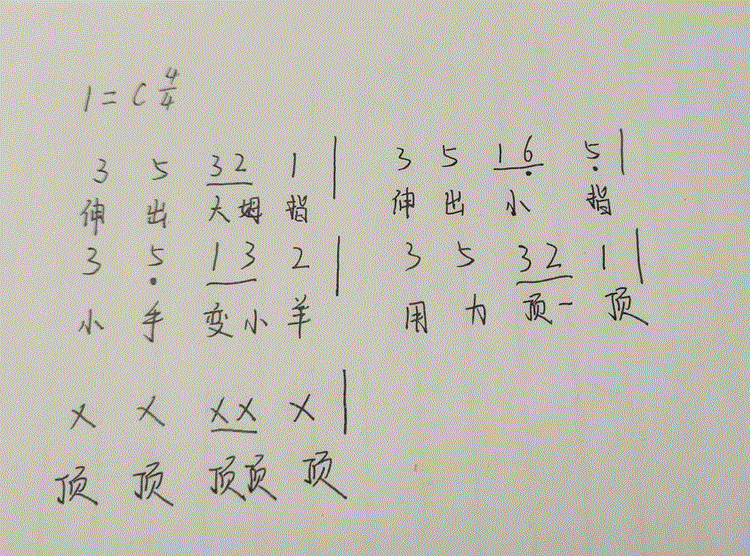 1=C 4/4
3 5 3̲2̲ 1 | 3 5 1̲6̣̲ 5̣ |
伸 出 大拇 指 伸 出 小 指
3 5̣ 1̲3̲ 2 | 3 5 3̲2̲ 1 |
小 手 变小 羊 用 力 顶一 顶
X X X̲X̲ X |
顶 顶 顶顶 顶